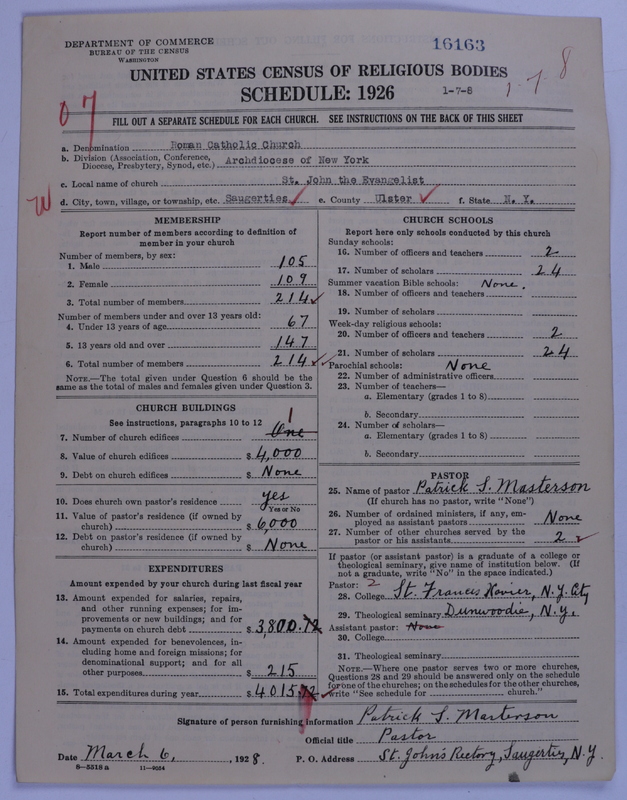 DEPARTMENT OF COMMERCE
BUREAU OF THE CENSUS
WASHINGTON
16163
UNITED STATES CENSUS OF RELIGIOUS BODIES
SCHEDULE: 1926
1-7-8
1-7-8
07
FILL OUT A SEPARATE SCHEDULE FOR EACH CHURCH. SEE INSTRUCTIONS ON THE BACK OF THIS SHEET
a. Denomination Roman Catholic Church
b. Division (Association, Conference, Diocese, Presbytery, Synod, etc.) Archdiocese of New York
c. Local name of church St. John the Evangelist
W d. City, town, village, or township, etc. Saugerties e. County Ulster f. State N. Y.
MEMBERSHIP
Report number of members according to definition of
member in your church
Number of members, by sex:
1. Male 105
2. Female 109
3. Total number of members 214
Number of members under and over 13 years old:
4. Under 13 years of age 67
5. 13 years old and over 147
6. Total number of members 214
NOTE.—The total given under Question 6 should be the
same as the total of males and females given under Question 3.
CHURCH BUILDINGS
See instructions, paragraphs 10 to 12
7. Number of church edifices One 1
8. Value of church edifices $ 4,000
9. Debt on church edifices $ None
10. Does church own pastor's residence yes
Yes or No
11. Value of pastor's residence (if owned by
church) $ 6,000
12. Debt on pastor's residence (if owned by
church) $ None
EXPENDITURES
Amount expended by your church during last fiscal year
13. Amount expended for salaries, repairs,
and other running expenses; for im-
provements or new buildings; and for
payments on church debt $ 3800.72
14. Amount expended for benevolences, in-
cluding home and foreign missions; for
denominational support; and for all
other purposes $ 215
15. Total expenditures during year $ 4015.72
CHURCH SCHOOLS
Report here only schools conducted by this church
Sunday schools:
16. Number of officers and teachers 2
17. Number of scholars 24
Summer vacation Bible schools: None.
18. Number of officers and teachers
19. Number of scholars
Week-day religious schools:
20. Number of officers and teachers 2
21. Number of scholars 24
Parochial schools: None
22. Number of administrative officers
23. Number of teachers—
a. Elementary (grades 1 to 8)
b. Secondary
24. Number of scholars—
a. Elementary (grades 1 to 8)
b. Secondary
PASTOR
25. Name of pastor Patrick S. Masterson
(If church has no pastor, write "None")
26. Number of ordained ministers, if any, em-
ployed as assistant pastors None
27. Number of other churches served by the
pastor or his assistants 2
If pastor (or assistant pastor) is a graduate of a college or
theological seminary, give name of institution below. (If
not a graduate, write "No" in the space indicated.)
Pastor: 2
28. College St. Francis Xavier, N.Y. City
29. Theological seminary Dunwoodie, N.Y.
Assistant pastor: None
30. College
31. Theological seminary
NOTE.—Where one pastor serves two or more churches,
Questions 28 and 29 should be answered only on the schedule
for one of the churches; on the schedules for the other churches,
write "See schedule for church."
Signature of person furnishing information Patrick S. Masterson
Official title Pastor
Date March 6, 1928. P. O. Address St. John's Rectory, Saugerties, N.Y.
8—5518 a 11—9054